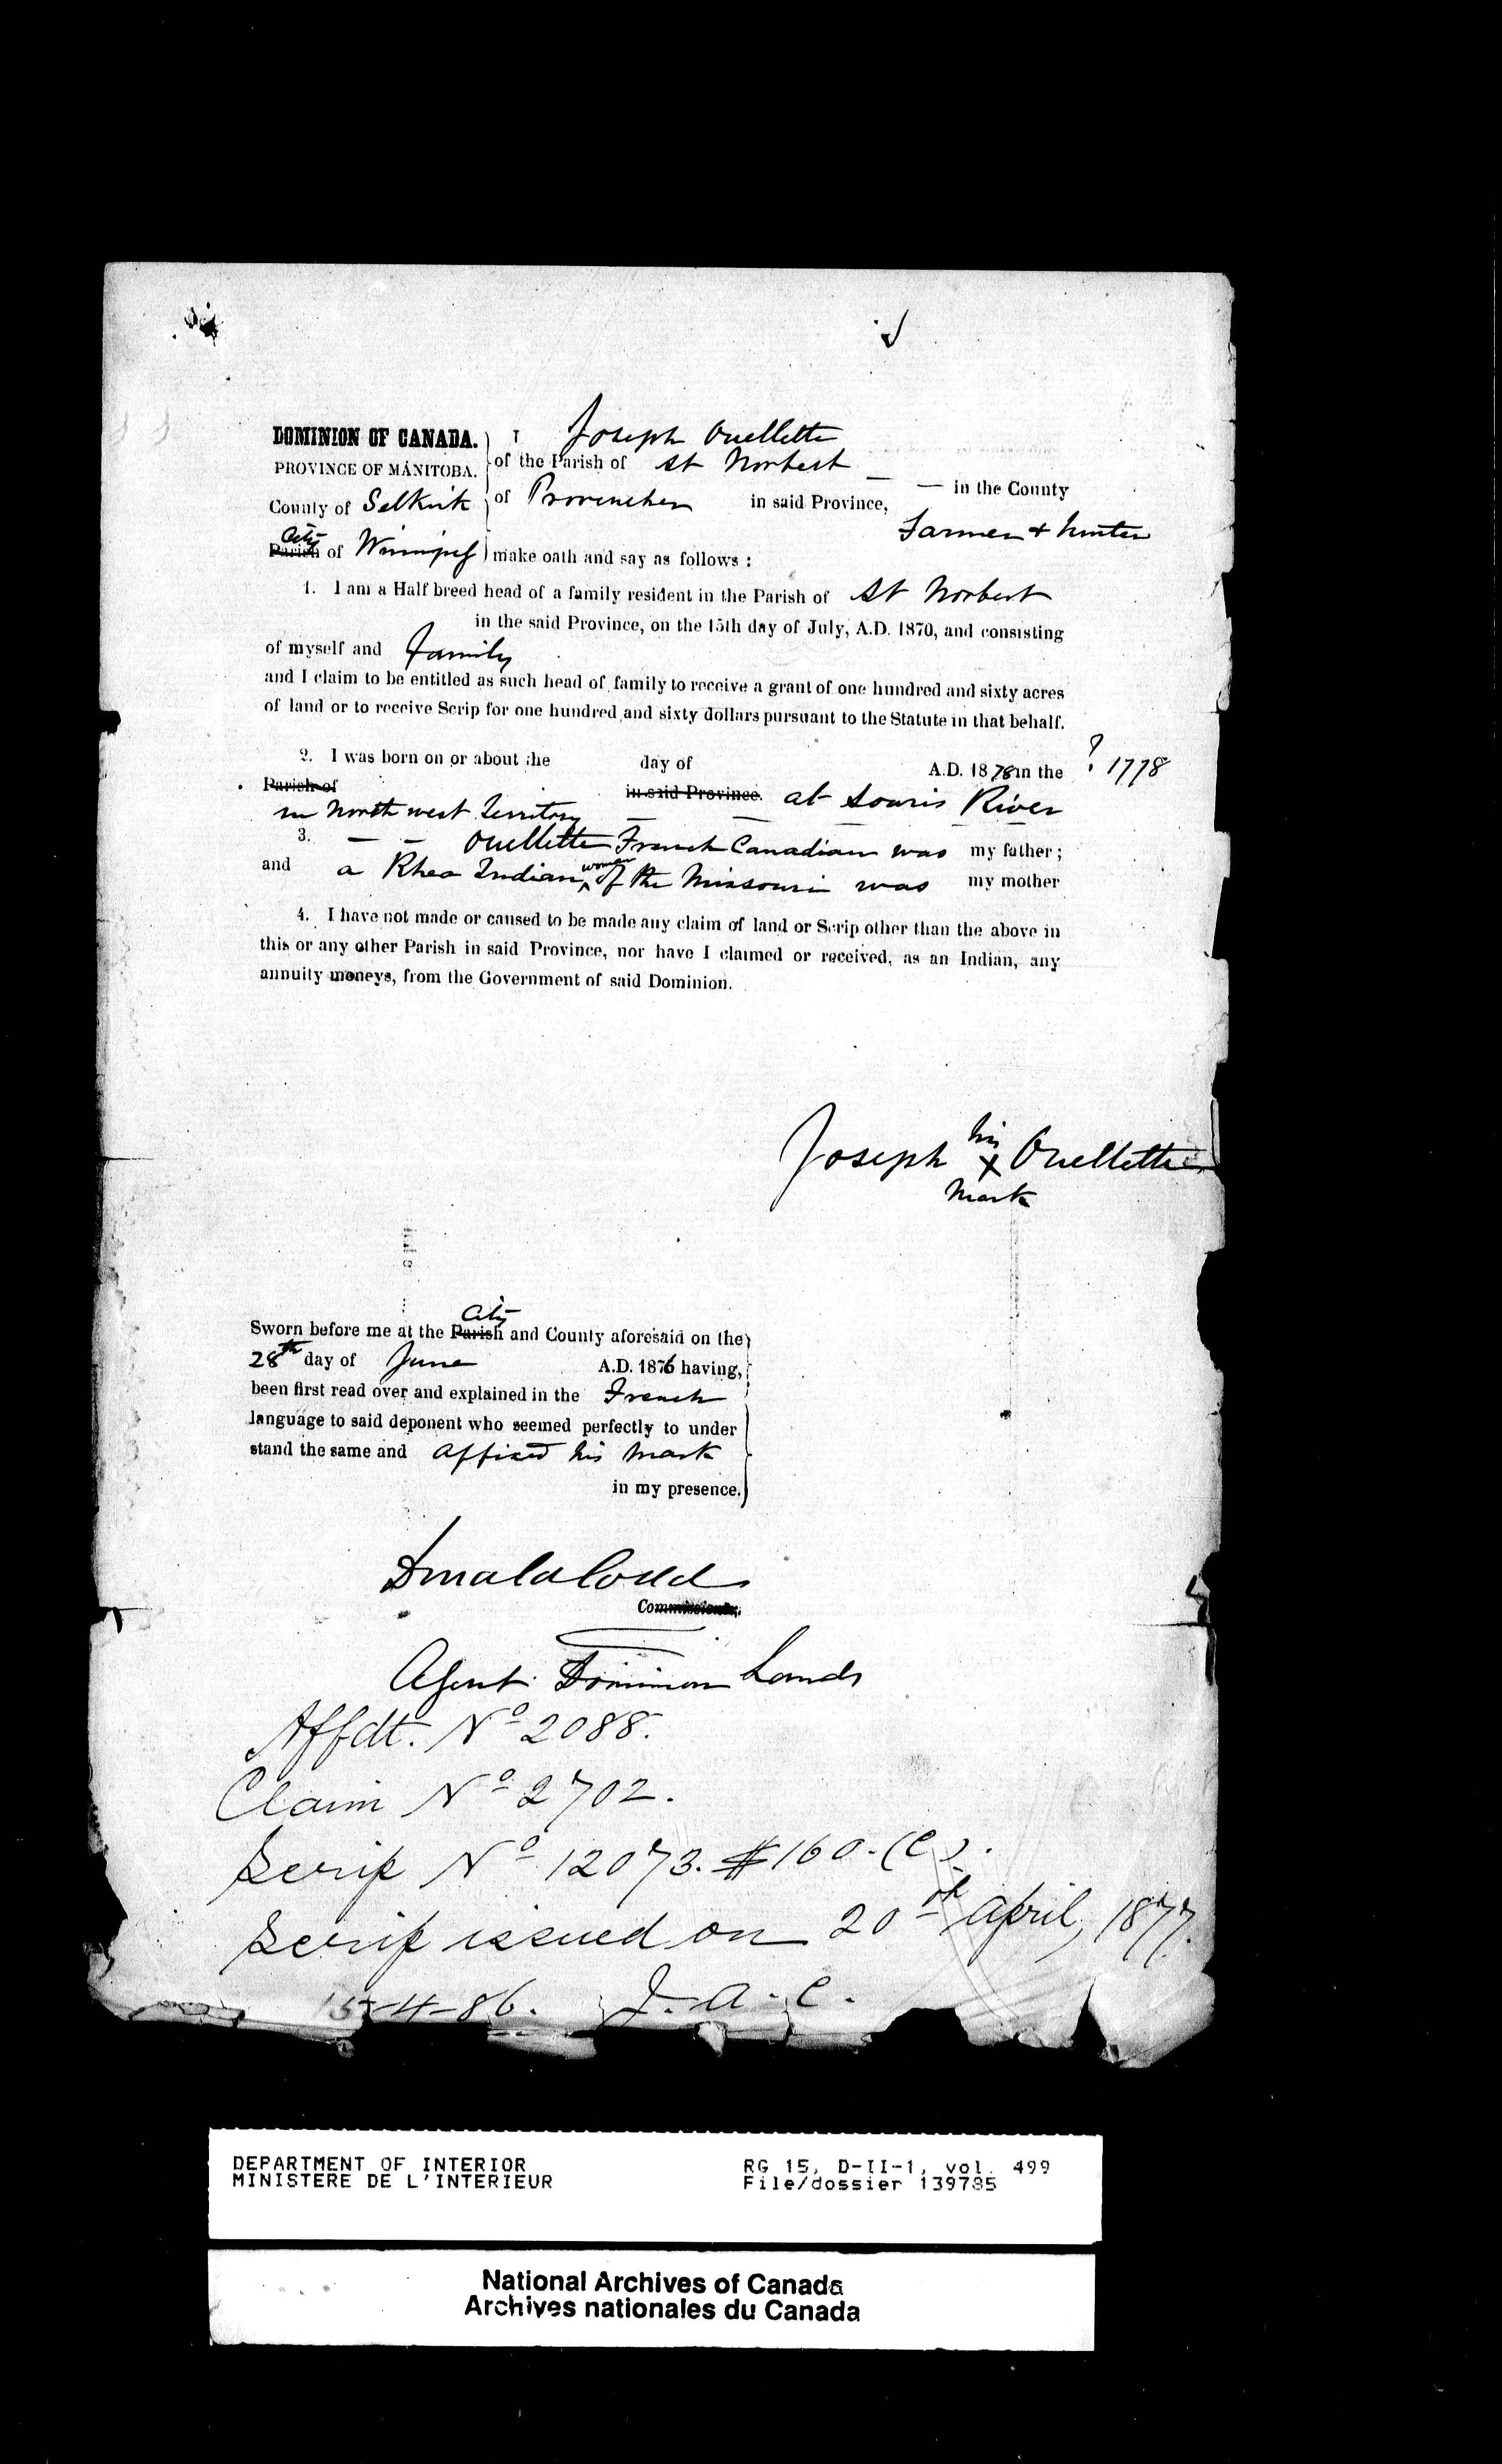 DOMINION OF CANADA. I Joseph Ouellette
PROVINCE OF MANITOBA. of the Parish of St Norbert — in the County
County of Selkirk of Provencher in said Province, Farmer & hunter
Parish City of Winnipeg make oath and say as follows :
1. I am a Half breed head of a family resident in the Parish of St Norbert
in the said Province, on the 15th day of July, A.D. 1870, and consisting
of myself and family
and I claim to be entitled as such head of family to receive a grant of one hundred and sixty acres
of land or to receive Scrip for one hundred and sixty dollars pursuant to the Statute in that behalf.
2. I was born on or about the day of A.D. 1878 in the ? 1778
Parish of in said Province. at Souris River
in North west Territory
3. — — Ouellette French Canadian was my father;
and a Rhea Indian woman of the Missouri was my mother
4. I have not made or caused to be made any claim of land or Scrip other than the above in
this or any other Parish in said Province, nor have I claimed or received, as an Indian, any
annuity moneys, from the Government of said Dominion.
Joseph his x Ouellette
mark
Sworn before me at the Parish City and County aforesaid on the
28th day of June A.D. 1876 having,
been first read over and explained in the French
language to said deponent who seemed perfectly to under
stand the same and affixed his mark
in my presence.
Donald Codd
Commissioner.
Agent Dominion Lands
Affdt. No 2088.
Claim No 2702.
Scrip No 12073. $160.(C).
Scrip issued on 20th April, 1877.
15-4-86. J.A.C.
DEPARTMENT OF INTERIOR RG 15, D-II-1, vol. 499
MINISTERE DE L'INTERIEUR File/dossier 139785
National Archives of Canada
Archives nationales du Canada